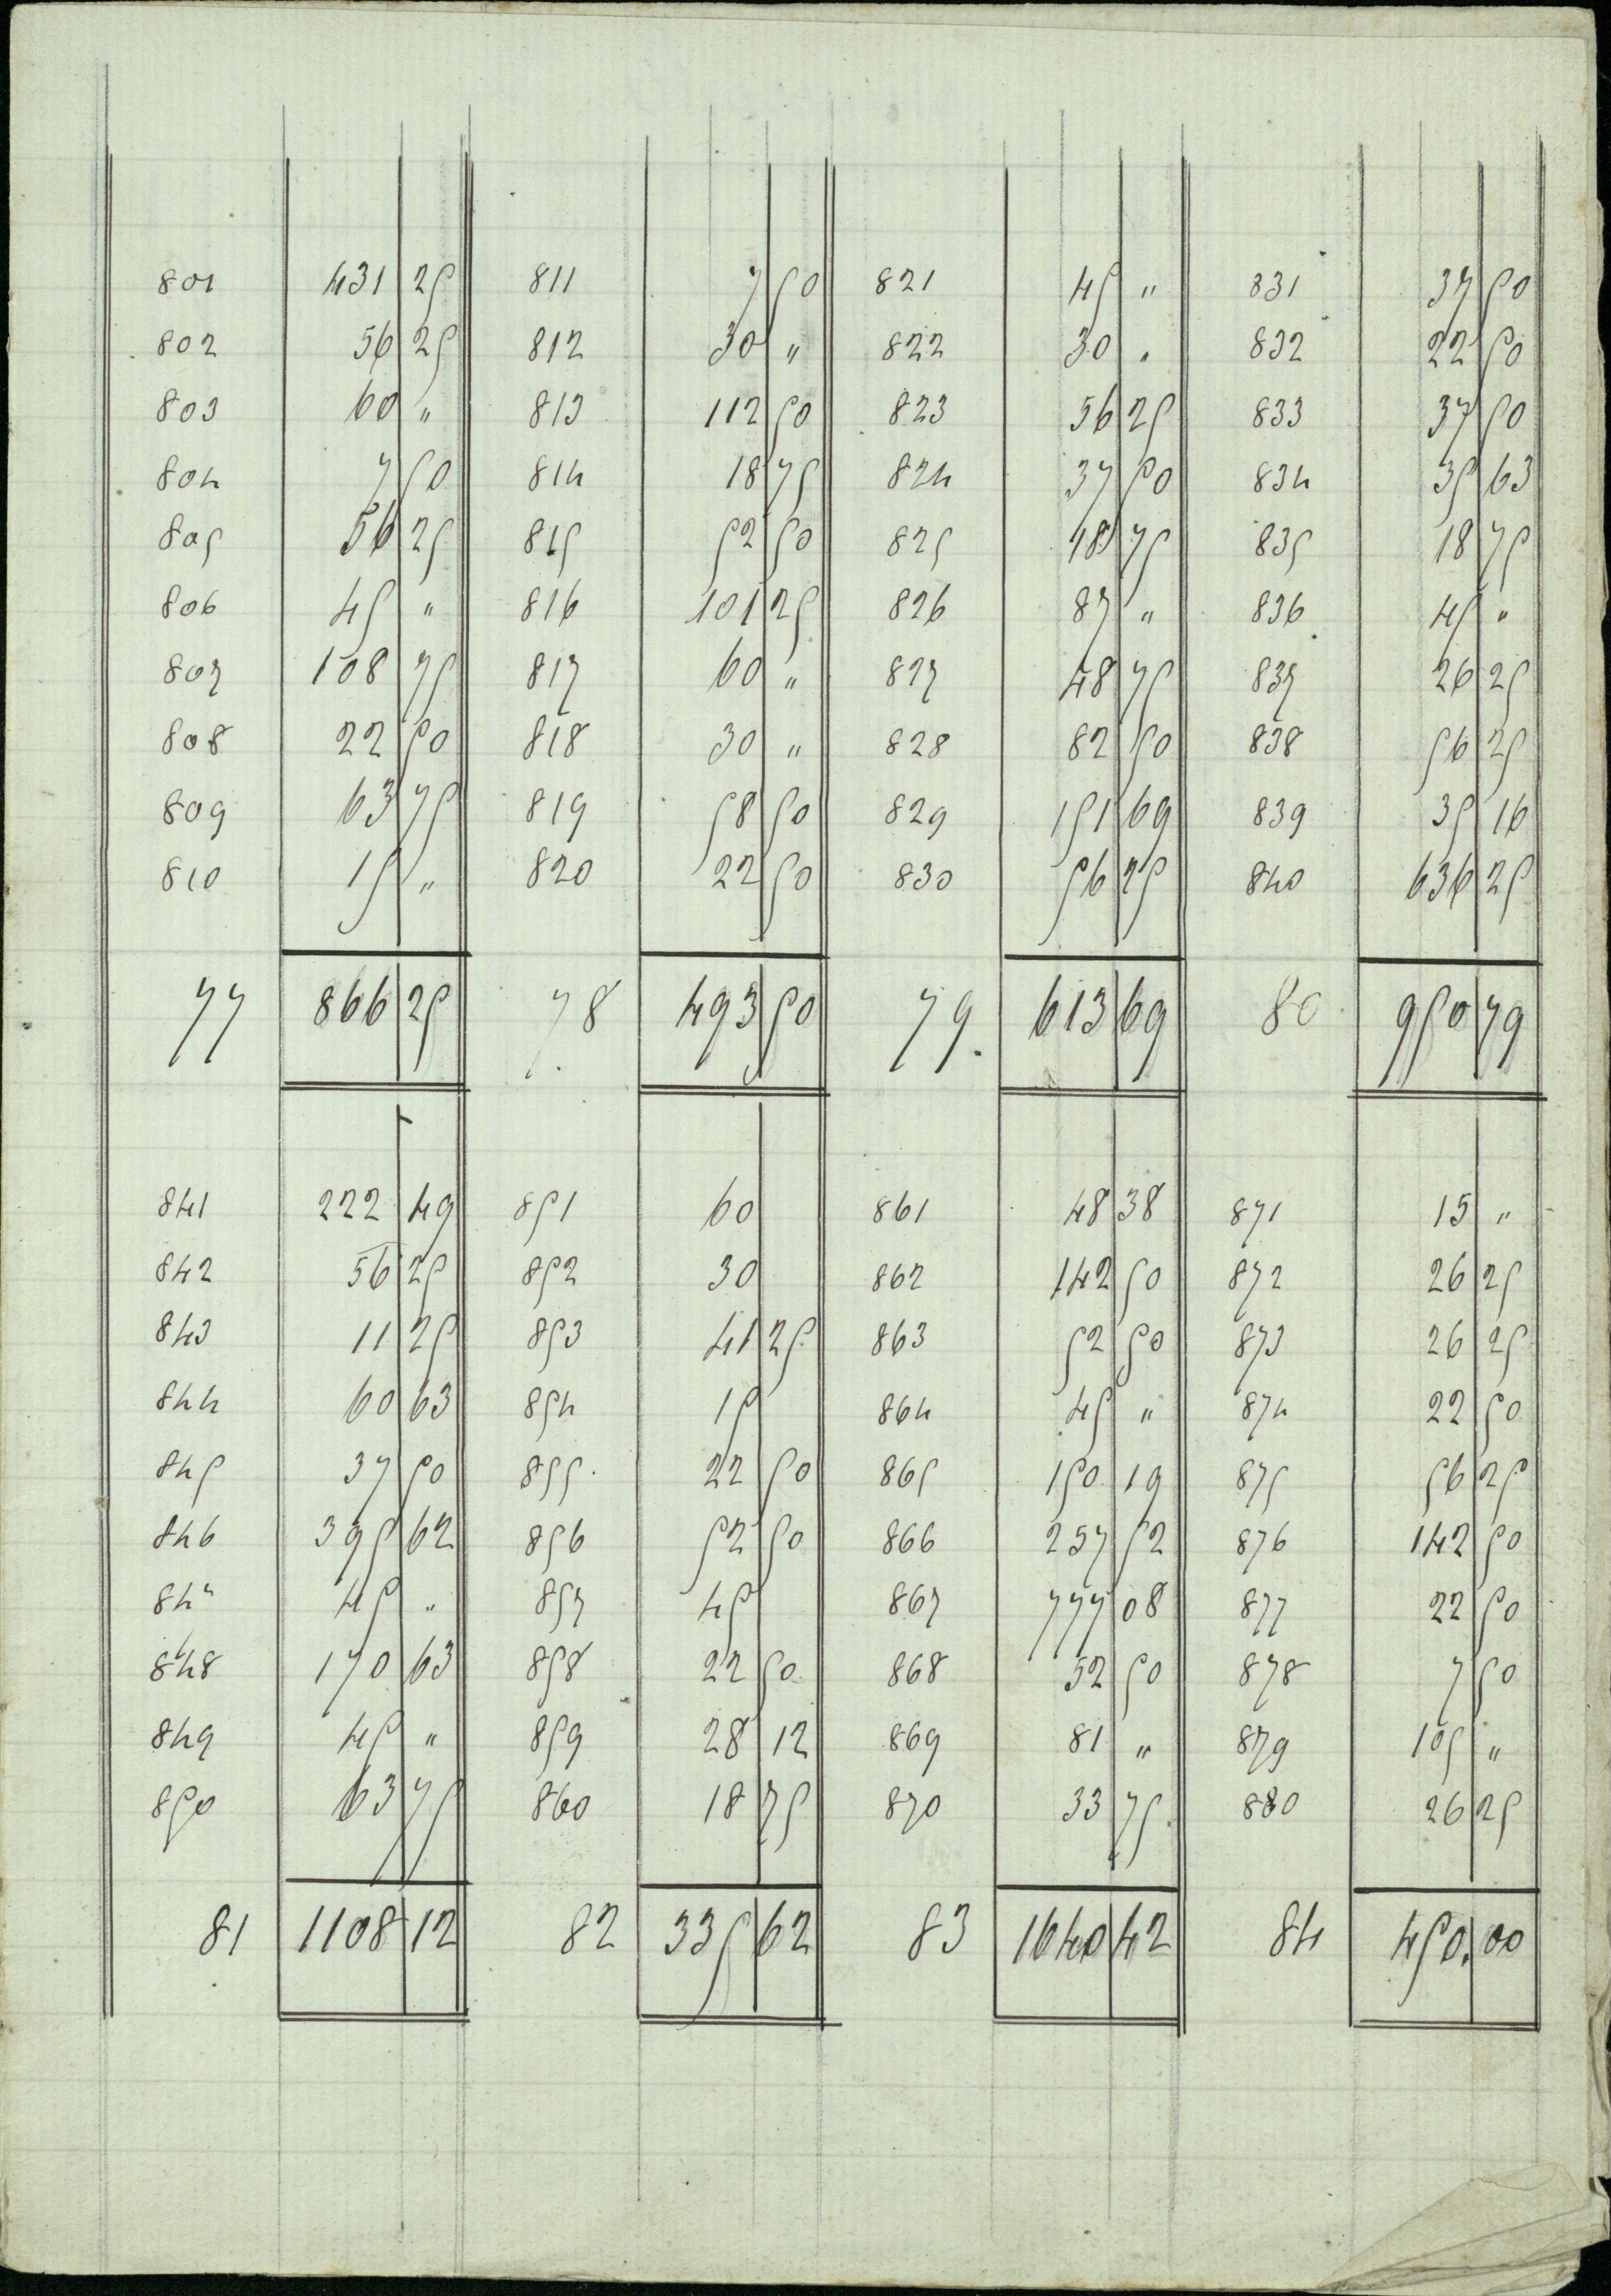 801 431 25 811 7 50 821 45 " 831 37 50
802 56 25 812 30 " 822 30 " 832 22 50
803 60 " 813 112 50 823 56 25 833 37 50
804 7 50 814 18 75 824 37 50 834 35 63
805 56 25 815 52 50 825 18 75 835 18 75
806 45 " 816 101 25 826 87 " 836 45 "
807 108 75 817 60 " 827 48 75 837 26 25
808 22 50 818 30 " 828 82 50 838 56 25
809 63 75 819 58 50 829 151 69 839 35 16
810 15 " 820 22 50 830 56 25 840 636 25
77 866 25 78 493 50 79. 613 69 80 950 79
841 222 49 851 60 861 48 38 871 15 "
842 56 25 852 30 862 142 50 872 26 25
843 11 25 853 41 25 863 52 50 873 26 25
844 60 63 854 15 864 45 " 874 22 50
845 37 50 855 22 50 865 150 19 875 56 25
846 395 62 856 52 50 866 257 52 876 142 50
847 45 " 857 45 867 777 08 877 22 50
848 170 63 858 22 50 868 52 50 878 7 50
849 45 " 859 28 12 869 81 " 879 105 "
850 63 75 860 18 75 870 33 75 880 26 25
81 1108 12 82 335 62 83 1640 42 84 450. 00